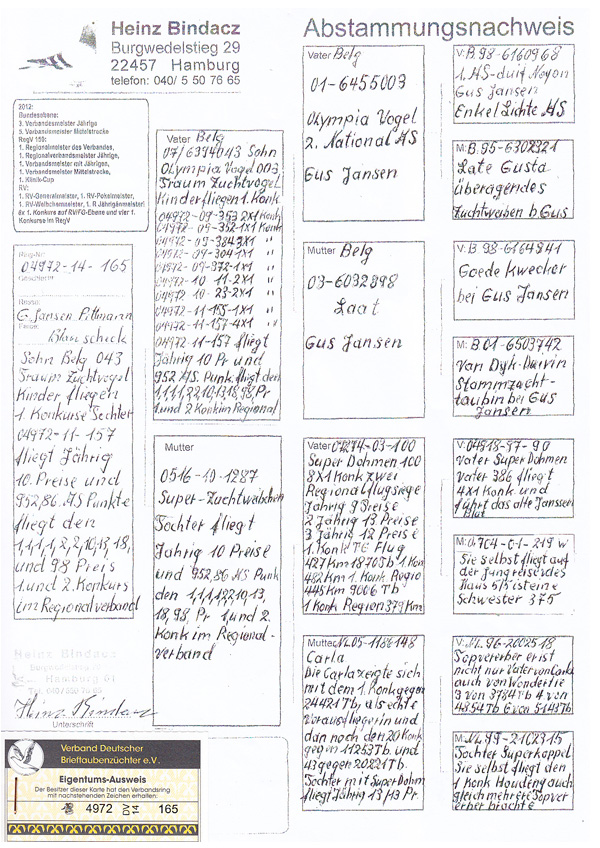 Heinz Bindacz
Burgwedelstieg 29
22457 Hamburg
telefon: 040/ 5 50 76 65
Abstammungsnachweis
2012:
Bundesebene:
3. Verbandsmeister Jährige
5. Verbandsmeister Mittelstrecke
RegV 150:
1. Regionalmeister des Verbandes,
1. Regionalverbandsmeister Jährige,
1. Verbandsmeister mit Jährigen,
1. Verbandsmeister Mittelstrecke,
1. Klinik-Cup
RV:
1. RV-Generalmeister, 1. RV-Pokalmeister,
1. RV-Weibchenmeister, 1. R Jährigenmeister!
6x 1. Konkurs auf RV/FG-Ebene und vier 1.
Konkurse im RegV
04972-14-165
G. Jansen Pittmann
Blau scheck
Sohn Belg 043
Traum Zuchtvogel
Kinder fliegen
1. Konkurse Sechter
04972-11-157
fliegt Jährig
10. Preise und
952,86. AS Punkte
fliegt den
1,1,1,1,2,2,10,13,18,
und 98 Preis
1. und 2. Konkurs
im Regionalverband
Heinz Bindacz
Hamburg 61
Unterschrift
Verband Deutscher
Brieftaubenzüchter e.V.
Eigentums-Ausweis
Der Besitzer dieser Karte hat den Verbandsring
mit nachstehenden Zeichen erhalten.
4972 DV 14 165
Vater Belg
07/6394043 Sohn
Olympia Vogel 003
Traum Zuchtvogel
Kinder fliegen 1. Konk
04972-09-353 2X1 Konk
04972-09-352-1X1 Konk
04972-09-384 3X1
04972-09-304 1X1
04972-09-372-1X1
04972-10 11-2X1
04972-10-23-2X1
04972-11-155-1X1
04972-11-157-4X1
04972-11-157 fliegt
Jährig 10 Pr und
952 AS. Punk. fliegt den
1,1,1,1,2,2,10,13,18,98, Pr
1. und 2 Konk im Regional
Mutter
0516-10-1287
Super-Zuchtweibchen
Tochter fliegt
Jährig 10 Preise
und 952,86 AS Punk
den 1,1,1,1,2,2,10,13,
18, 98, Pr 1. und 2.
Konk im Regional-
verband
Vater Belg
01-6455003
Olympia Vogel
2. National AS
Gus Jansen
Mutter Belg
03-6032898
Laat
Gus Jansen
Vater 04274-03-100
Super Dohmen 100
8X1 Konk zwei
Regionalflugsiege
Jährig 9 Preise
2 Jährig 13 Preise
3 Jährig 12 Preise
1. Konk TG Flug
427 Km 18703 Tb 1 Kon
482 Km 1. Konk Regio
445 Km 9006 Tb
1 Konk Region 379 Km
Mutter NL 05-1186148
Carla
Die Carla zeigte sich
mit dem 1. Konk gegen
24421 Tb, als echte
Vorausfliegerin und
dan noch den 20 Konk
gegen 11253 Tb und
43 gegen 20221 Tb.
Tochter mit Super Dohm
fliegt Jährig 13/13 Pr.
V: B 98-6160968
1. AS-duif Noyon
Gus Jansen
Enkel Lichte AS
M: B. 95-6302321
Late Gusta
überagendes
Zuchtweiben b. Gus
V: B 98-6164841
Goede Kweeker
bei Gus Jansen
M: B 01-6503742
Van Dyk-Duivin
Stammzucht-
taubin bei Gus
Jansen
V: 04518-97-90
Vater Super Dohmen
Vater 386 fliegt
4X1 Konk. und
führt das alte Janssen
Blut
M: 0.704-01-219 w
Sie selbst fliegt auf
der Jungreise des
Haus 5/5 ist eine
Schwester 375
V: NL. 96-2002518
Topvererber er ist
nicht nur Vater von Carla
auch von Wondertie
3 von 3784 Tb 4 von
4854 Tb 6 von 5143 Tb
M: NL 99-2102315
Tochter Superkoppel
Sie selbst fliegt den
1 Konk Houdeng auch
gleich mehrere Topver
erber brachte